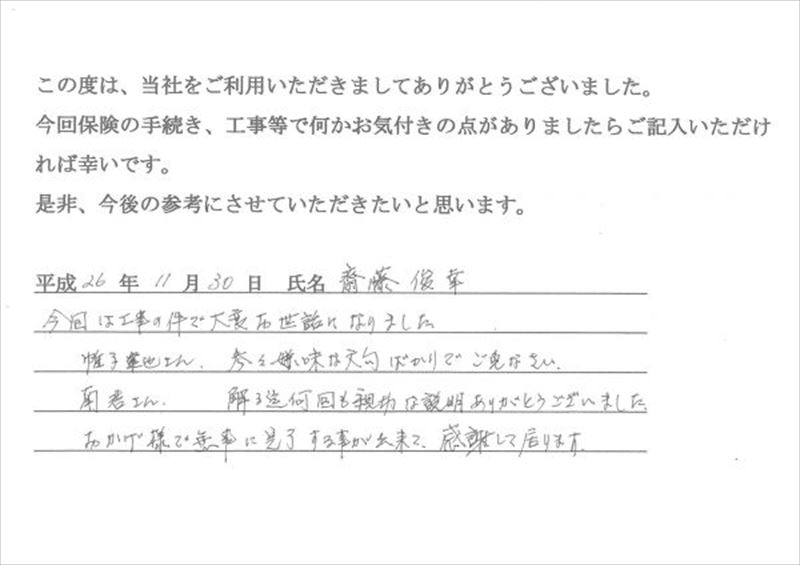 この度は、当社をご利用いただきましてありがとうございました。
今回保険の手続き、工事等で何かお気付きの点がありましたらご記入いただけ
れば幸いです。
是非、今後の参考にさせていただきたいと思います。
平成26年11月30日 氏名 齋藤俊幸
今回は工事の件で大変お世話になりました
さん、 嫌味な文句ばかりでご免なさい、
さん、 解る迄何回も親切な説明ありがとうございました、
おかげ様で無事に完了する事が出来て、感謝して居ります。